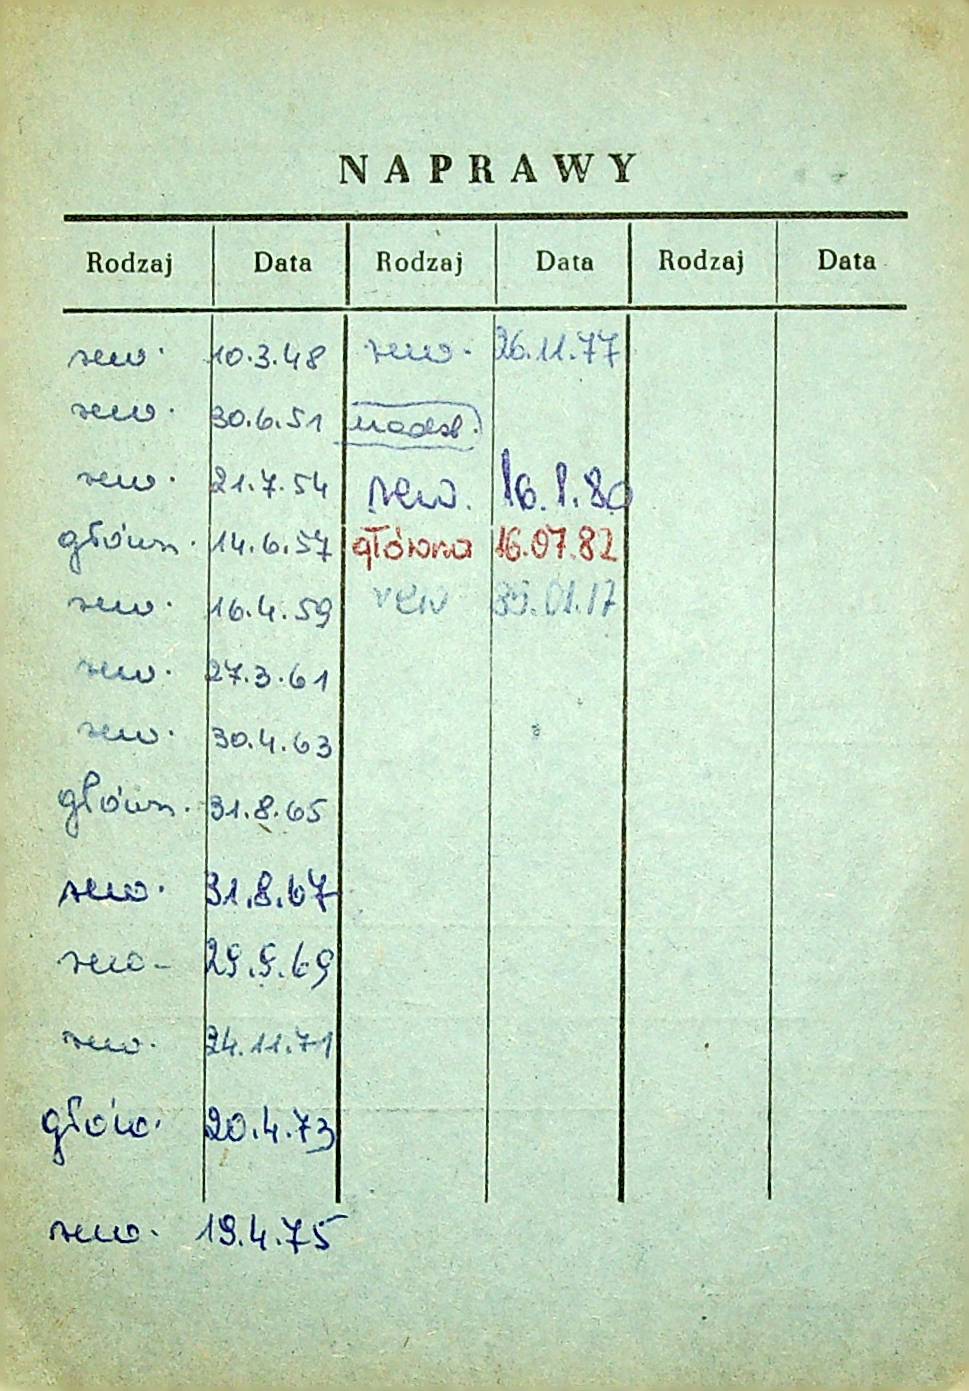 NAPRAWY
Rodzaj Data Rodzaj Data Rodzaj Data
rew. 10.3.48
rew. 30.6.51
rew. 21.7.54
główn. 14.6.57
rew. 16.4.59
rew. 27.3.61
rew. 30.4.63
główn. 31.8.65
rew. 31.8.67
rew. 29.9.69
rew. 24.11.71
głów. 20.4.73
rew. 19.4.75
rew. 26.11.77
rew. 16.1.80
główna 16.07.82
rew 85.01.17